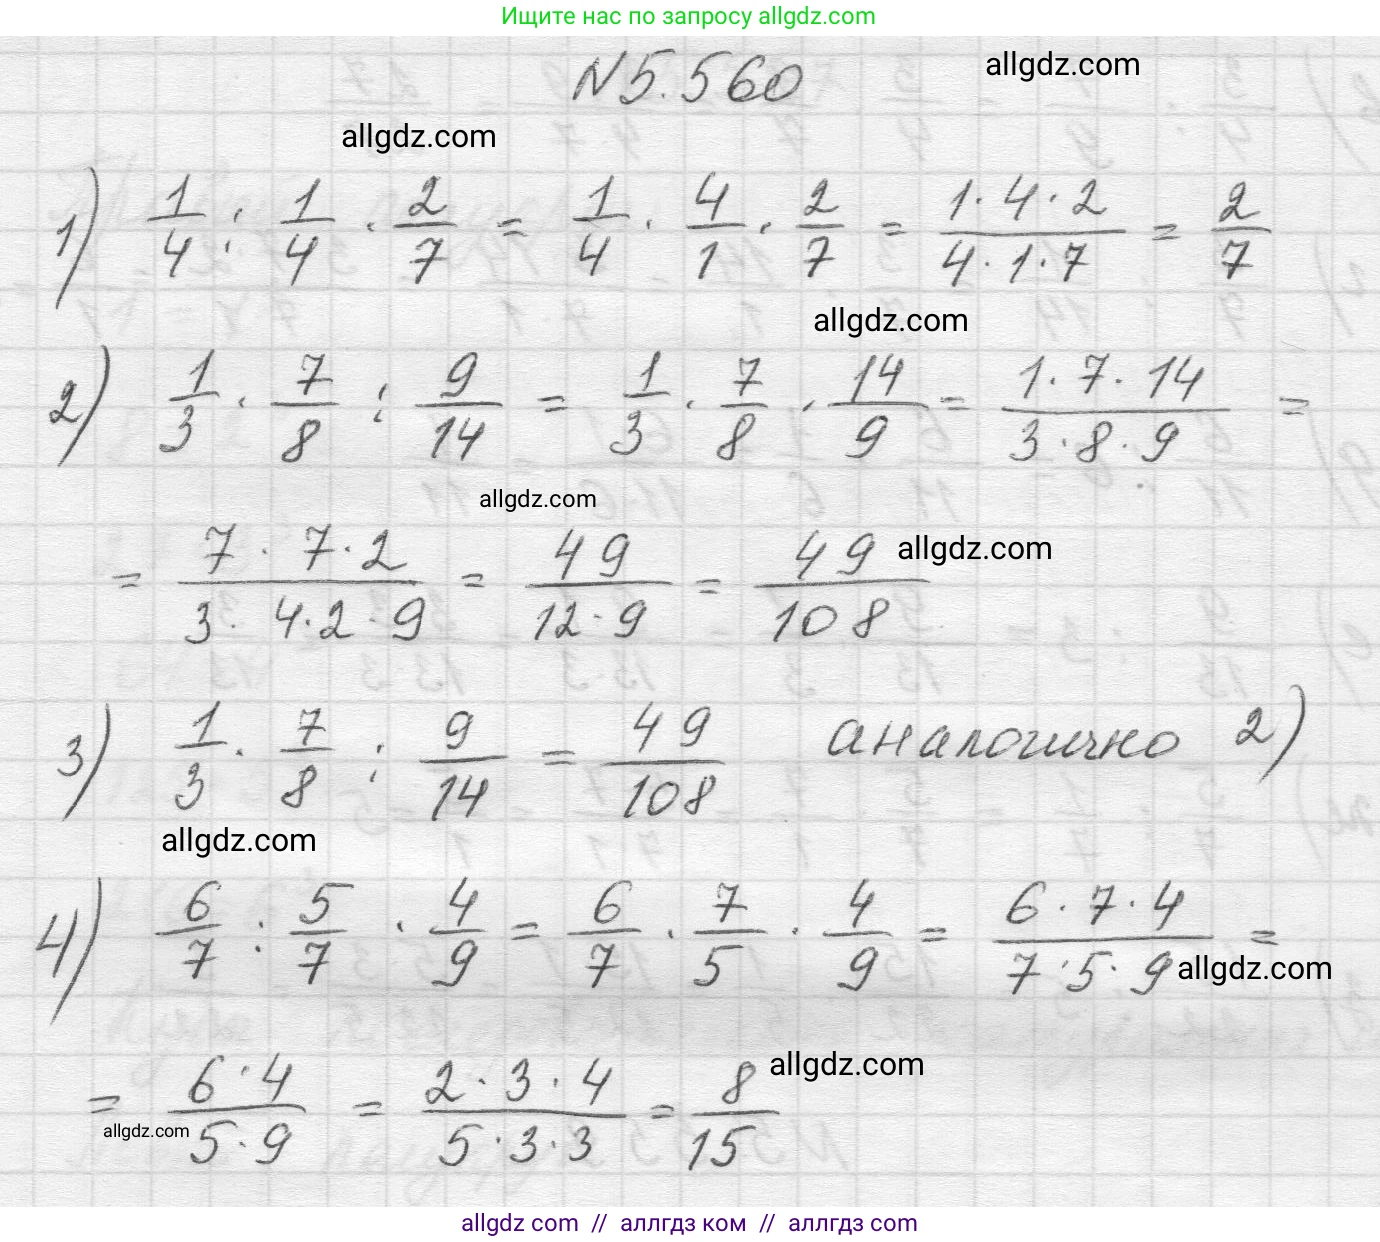 Ищите нас по запросу allgdz.com
N5.560
allgdz.com
allgdz.com
1) 1/4 : 1/4 · 2/7 = 1/4 · 4/1 · 2/7 = 1·4·2/4·1·7 = 2/7
allgdz.com
2) 1/3 · 7/8 : 9/14 = 1/3 · 7/8 · 14/9 = 1·7·14/3·8·9 =
allgdz.com
= 7·7·2/3·4·2·9 = 49/12·9 = 49/108
allgdz.com
3) 1/3 · 7/8 : 9/14 = 49/108 аналогично 2)
allgdz.com
4) 6/7 : 5/7 · 4/9 = 6/7 · 7/5 · 4/9 = 6·7·4/7·5·9 =
allgdz.com
= 6·4/5·9 = 2·3·4/5·3·3 = 8/15
allgdz.com
allgdz.com
allgdz.com // аллгдз ком // аллгдз com